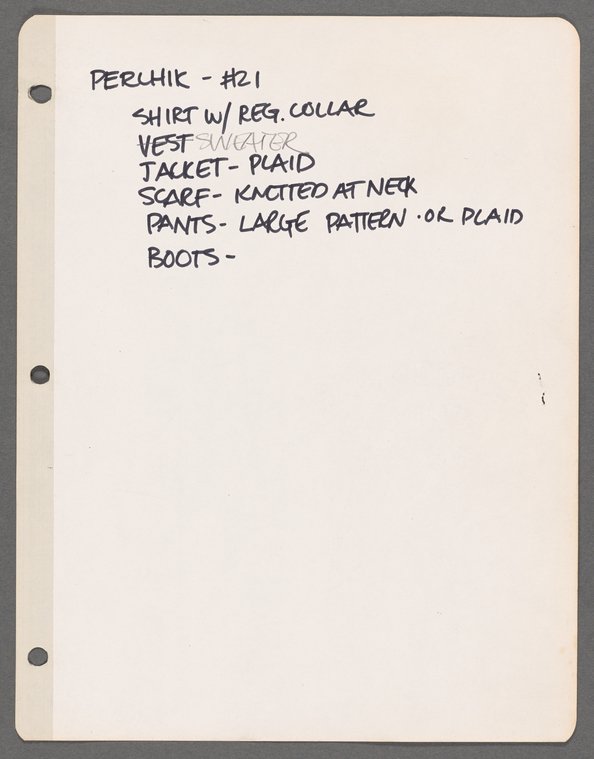 PERCHIK - #21
SHIRT W/ REG. COLLAR
VEST SWEATER
JACKET - PLAID
SCARF - KNOTTED AT NECK
PANTS - LARGE PATTERN · OR PLAID
BOOTS -